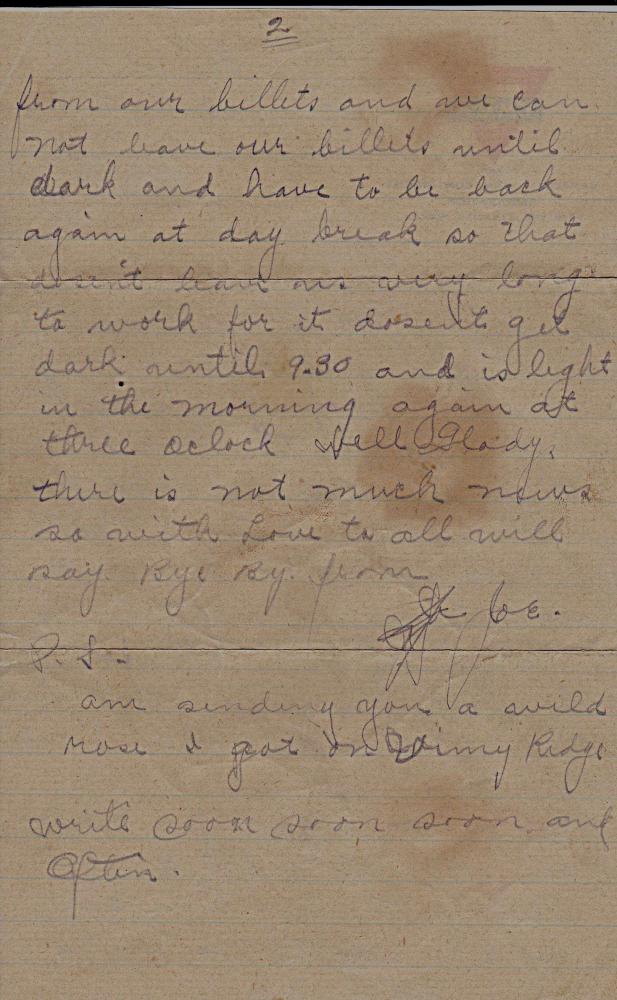 2
from our billets and we can
not leave our billets until
dark and have to be back
again at day break so that
dosent leave us very long
to work for it dosent get
dark until 9.30 and is light
in the morning again at
three oclock Well Glady,
there is not much news
so with Love to all will
say Bye By. from
Joe.
P. S.
am sending you a wild
rose I got on Vimy Ridge
write soon soon soon and
Often.